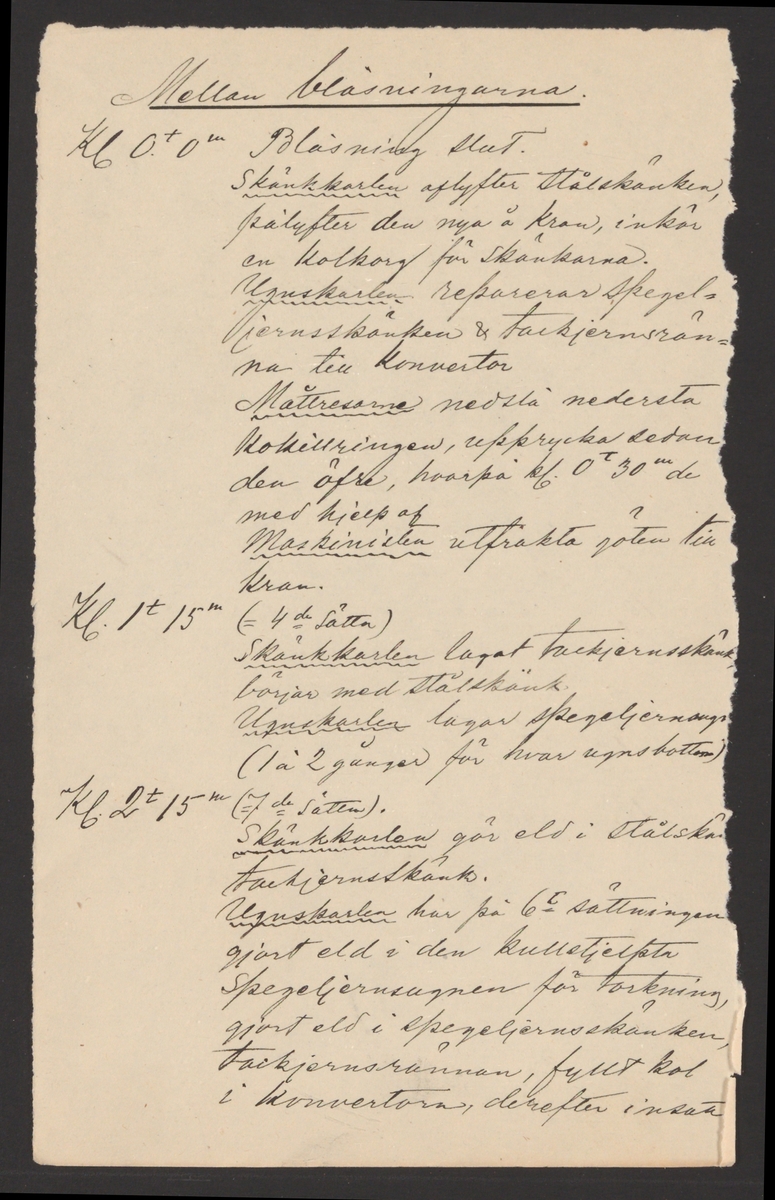 Mellan blåsningarna.
Kl. 0.t 0m Blåsning slut.
Skänkkarlen aflyfter stålskänken,
pålyfter den nya å kran, inkör
en kolkorg för skänkarna.
Ugnskarlen reparerar spegel=
jernsskänken & tackjernsrän=
na till konvertor
Måttresarne nedslå nedersta
kokillringen, upprycka sedan
den öfre, hvarpå kl. 0t 30m de
med hjelp af
Maskinisten utfrakta göten till
kran.
Kl. 1t 15m (= 4de Sättn)
Skänkkarlen lagat tackjernsskänk,
börjar med stålskänk
Ugnskarlen lagar spegeljernsugn
(1 à 2 gånger för hvar ugnsbotten)
Kl. 2t 15m (=7de Sättn).
Skänkkarlen gör eld i stålskä
tackjernsskänk.
Ugnskarlen har på 6te sättningen
gjort eld i den kullstjelpta
spegeljernsugnen för torkning,
gjort eld i spegeljernsskänken,
tackjernsrännan, fyllt kol
i konvertorn, derefter insatt